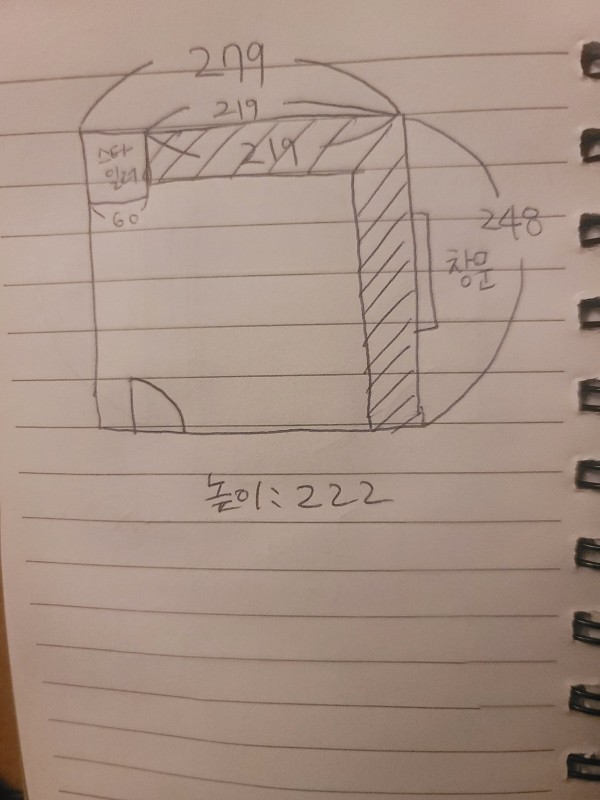 279
219
스타
일러
219
60
248
창문
높이: 222